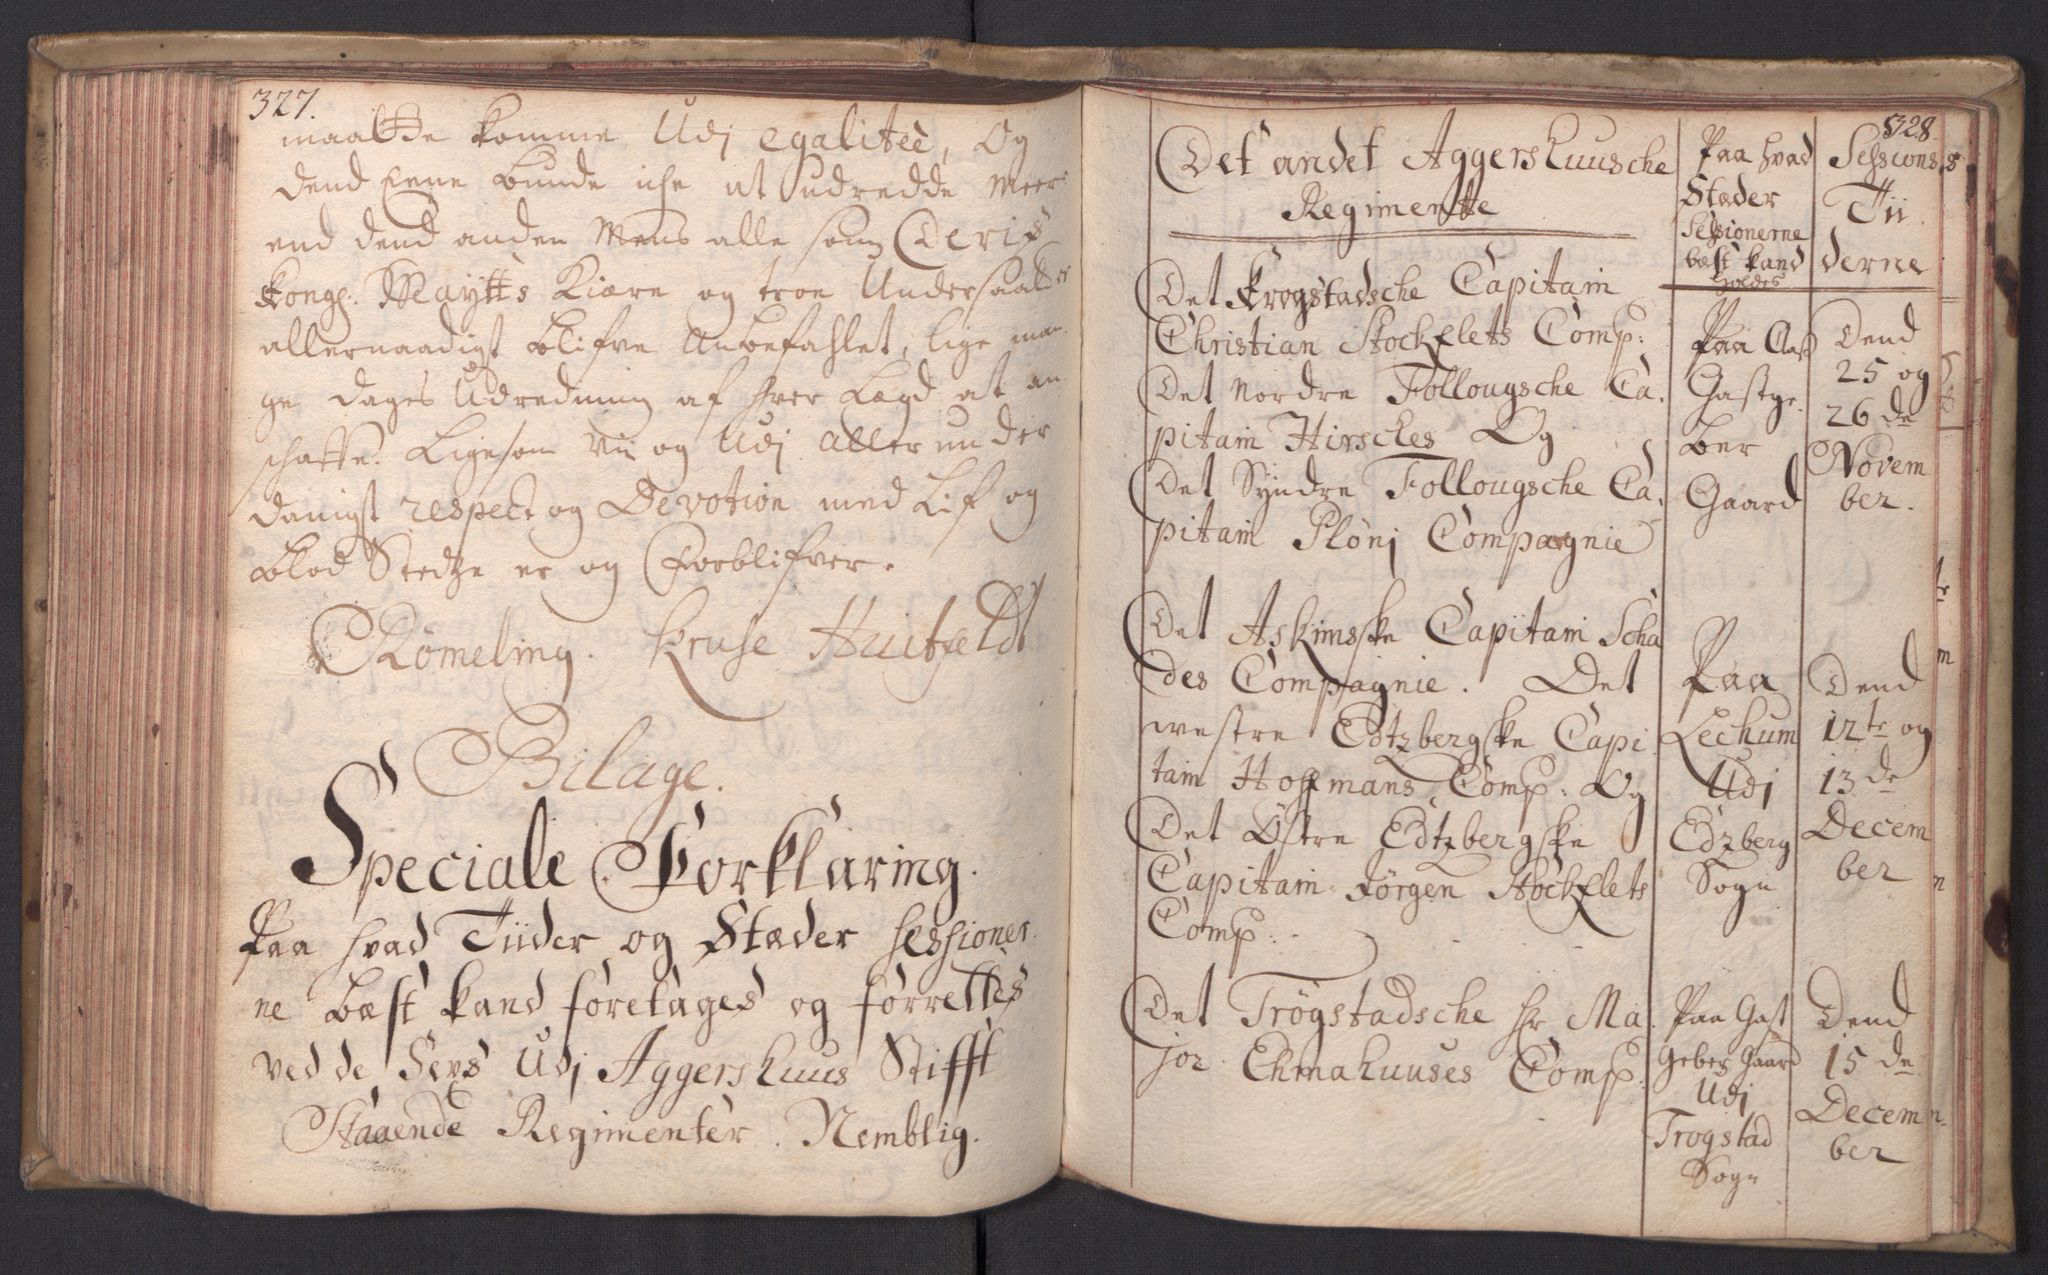 327.
maatte komme Udj egalitee, Og
dend Eene Bunde iche at udredde Meer
end dend anden Mens alle som Deris
Kongl. Maytts Kiære og troe Undersaatter
allernaadigst blifve Anbefahlet, lige man
ge dages Udredning af hver Lægd at an
schaffe. Ligesom Vii og Udj aller under
danigst respect og Devotion med Lif og
Blod Stedtze er og Forblifver.
Römeling. Kruse Huitfeldt
Bilage.
Speciale Forklaring.
Paa hvad Tiider og Stæder sessioner
ne bæst kand foretages og forrettes
ved de Sexs Udj Aggershuus Stifft
Staaende Regimenter. Nemblig.
328.
Det andet Aggershuusche
Regimente
Paa hvad
Stæder
Sessionerne
bæst kand
holdes
Sessions
Tii
derne
Det Krogstadsche Capitain
Christian Stockflets Comp:
Det Nordre Follougsche Ca
pitain Hirsches Og
Det Syndre Follougsche Ca
pitain Plönj Compagnie
Paa Aas
Gastge
ber
Gaard
Dend
25 og
26 de
Novem
ber.
Det Askimsske Capitain Scha
des Compagnie. Det
westre Edtzbergske Capi
tain Hoffmans Comp: Og
Det Östre Edtzbergske
Capitain Jörgen Stockflets
Comp:
Paa
Lechum
Udj
Edzberg
Sogn
Dend
12te og
13 de
Decem
ber
Det Trögstadsche Hr Ma
jor Ehmahuuses Comp:
Paa Gast
Geber Gaard
Udj
Trogstad
Sogn
Dend
15 de
Decem
ber